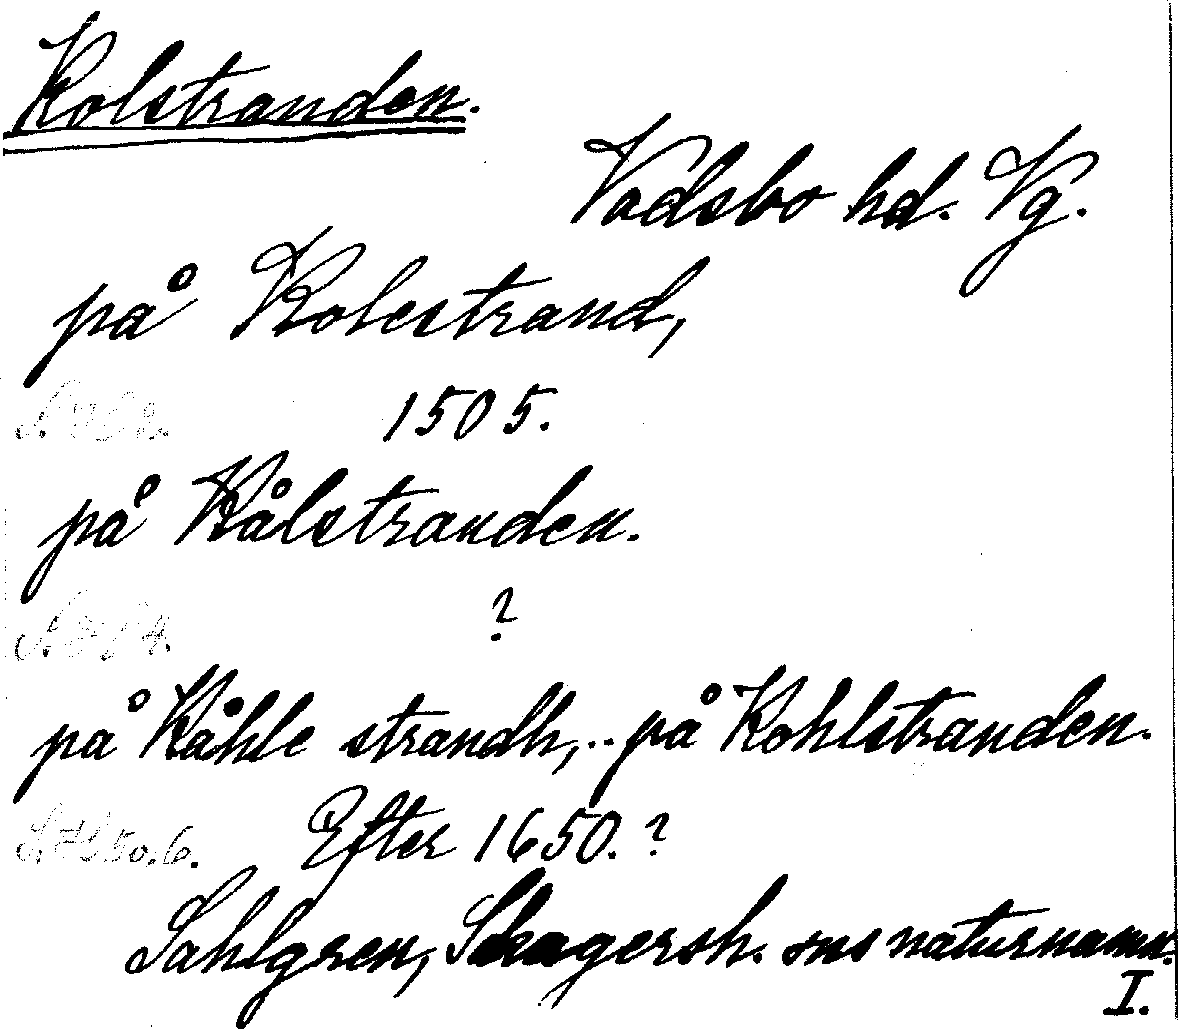 Kolstranden.
Vadsbo hd. Vg.
på Kolestrand,
1505.
på Kålstranden.
?
på Kåhle strandh,.. på Kohlstranden.
Efter 1650.?
Sahlgren, Skagersh. sns naturnamn.
I.